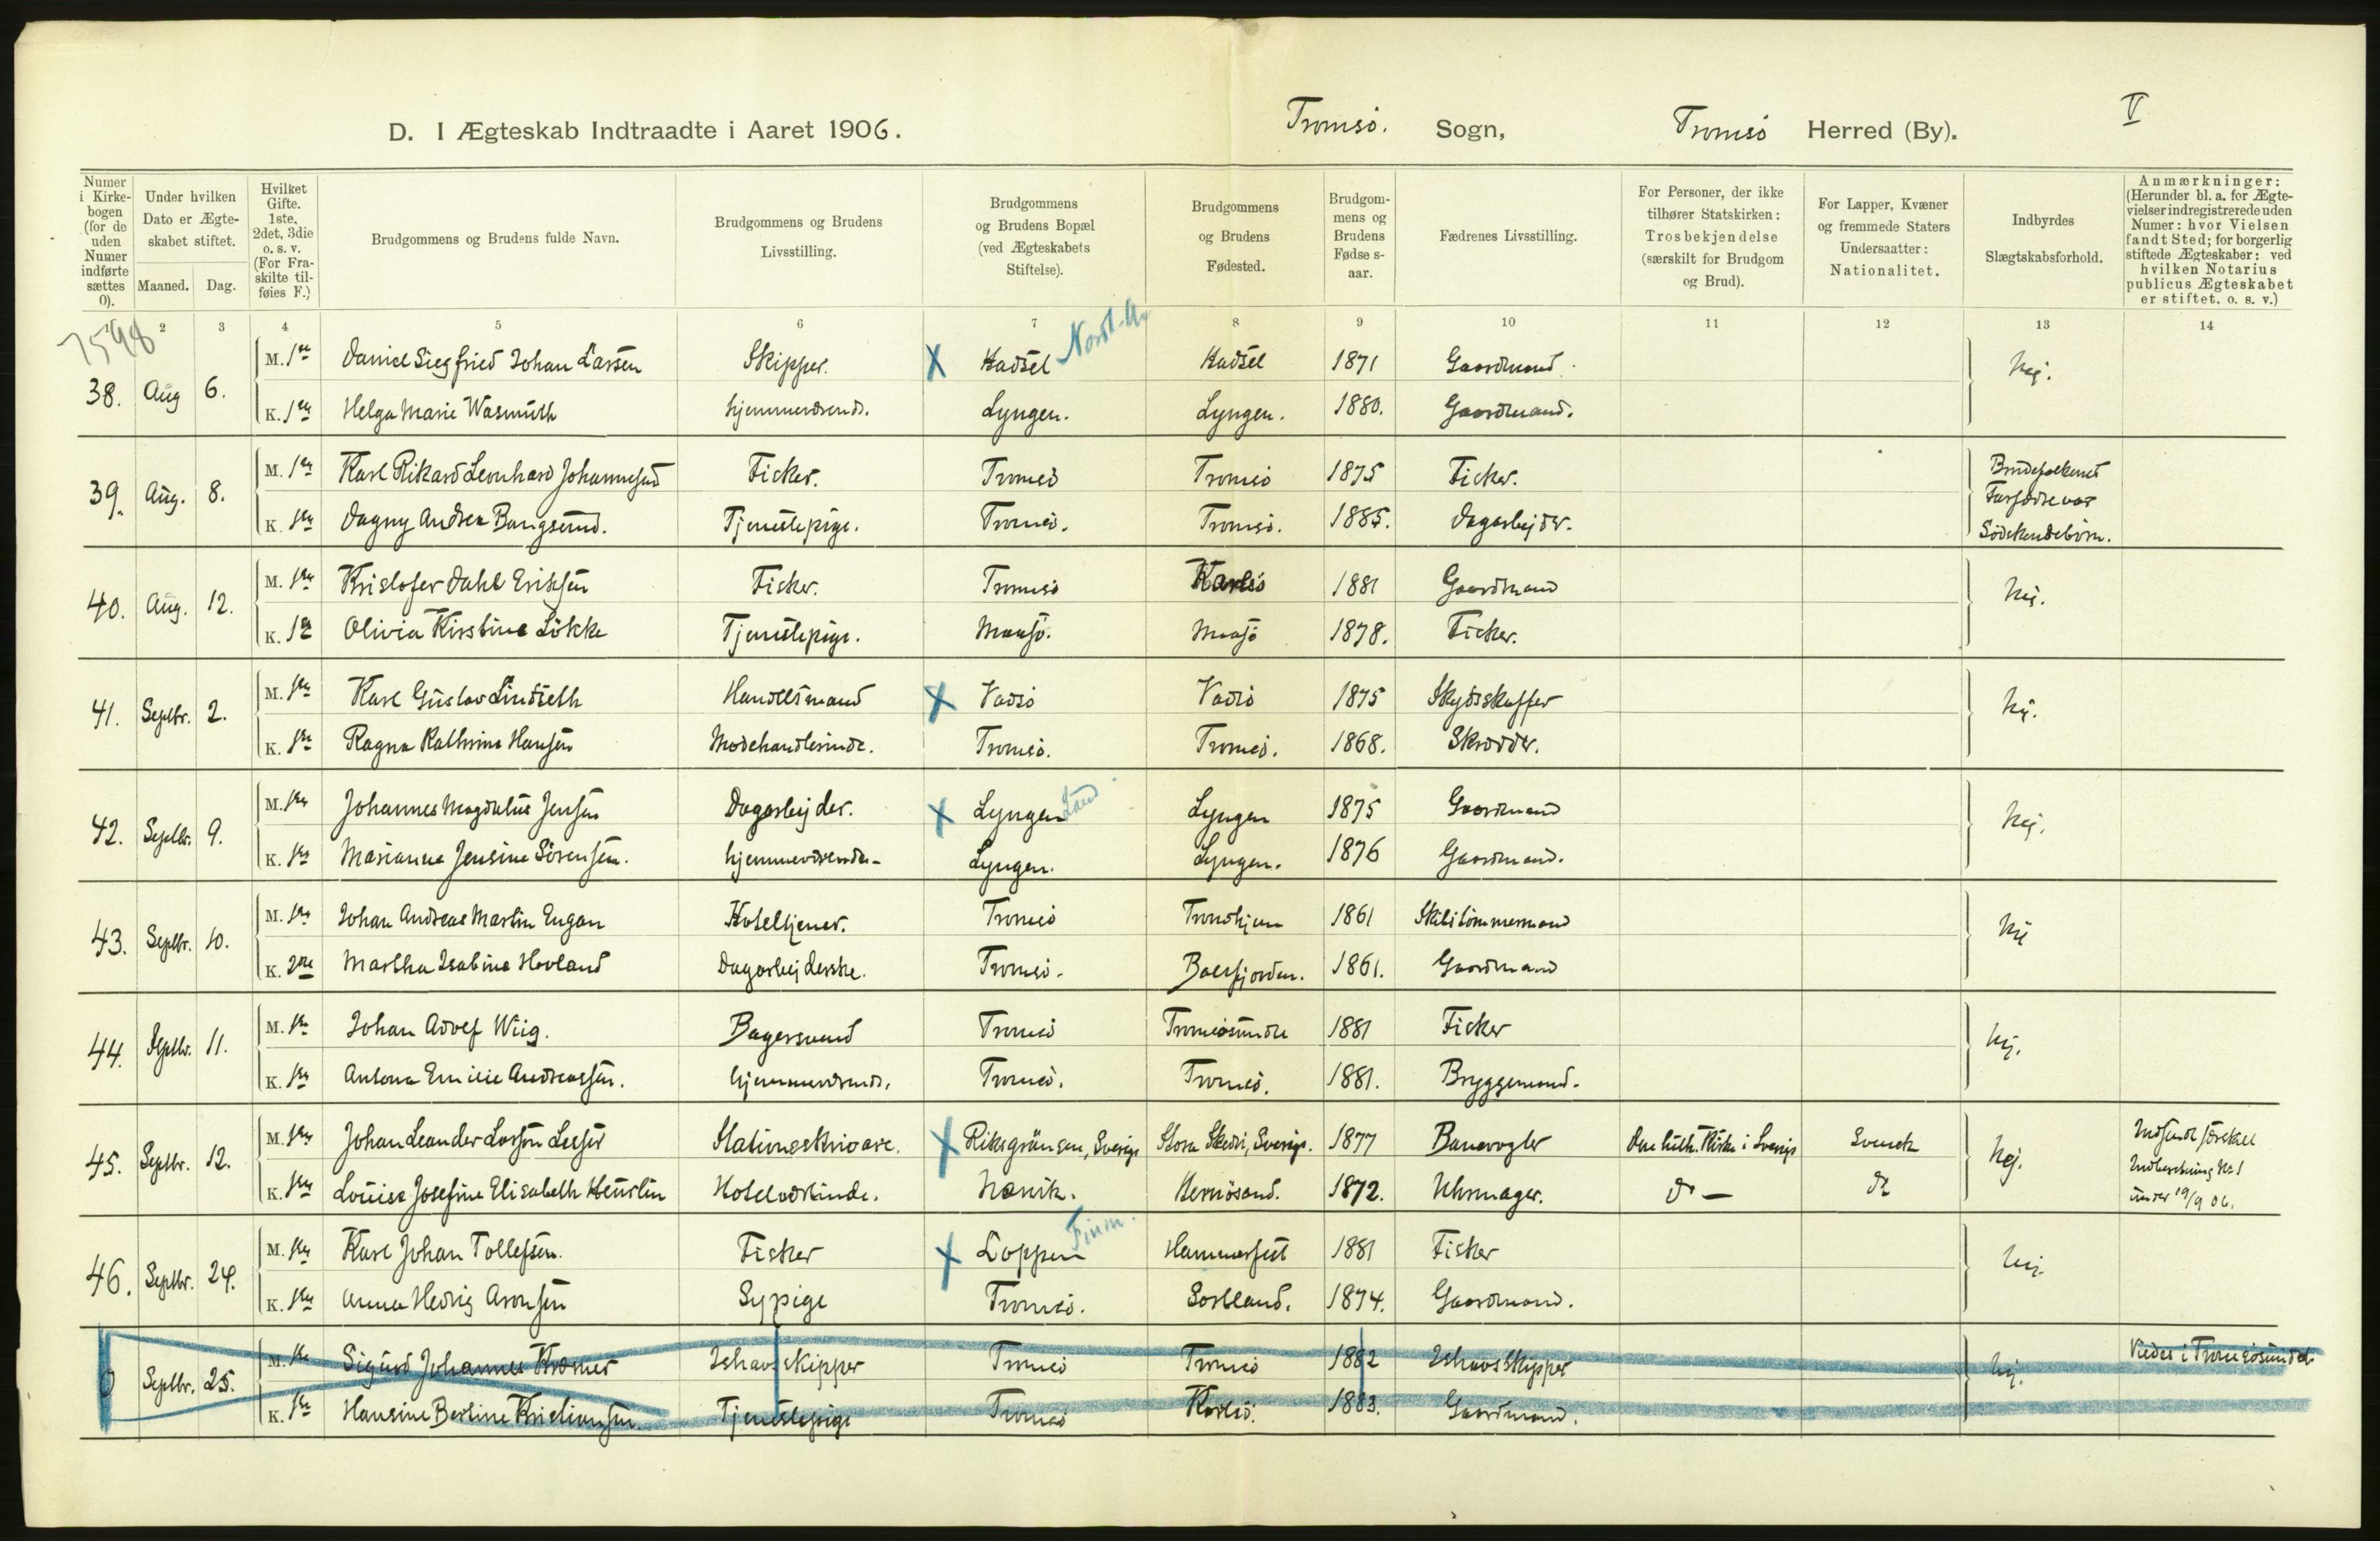 D. I Ægteskab Indtraadte i Aaret 1906. Tromsö. Sogn, Tromsö Herred (By). V
Numer i Kirkebogen (for de uden Numer indførte sættes 0).
Under hvilken Dato er Ægteskabet stiftet.
Maaned. Dag.
Hvilket Gifte. 1ste, 2det, 3die o. s. v. (For Fraskilte tilføies F.)
Brudgommens og Brudens fulde Navn.
Brudgommens og Brudens Livsstilling.
Brudgommens og Brudens Bopæl (ved Ægteskabets Stiftelse).
Brudgommens og Brudens Fødested.
Brudgommens og Brudens Fødselsaar.
Fædrenes Livsstilling.
For Personer, der ikke tilhører Statskirken: Trosbekjendelse (særskilt for Brudgom og Brud).
For Lapper, Kvæner og fremmede Staters Undersaatter: Nationalitet.
Indbyrdes Slægtskabsforhold.
Anmærkninger: (Herunder bl. a. for Ægtevielser indregistrerede uden Numer: hvor Vielsen fandt Sted; for borgerlig stiftede Ægteskaber: ved hvilken Notarius publicus Ægteskabet er stiftet. o. s. v.)
7598 2 3 4 5 6 7 8 9 10 11 12 13 14
38. Aug 6. M. 1ste Daniel Siegfried Johan Larsen Skipper. X Hadsel Nordl. Hadsel 1871 Gaardmand. Nej.
K. 1ste Helga Marie Wasmuth hjemmeværende. Lyngen. Lyngen. 1880. Gaardmand.
39. Aug. 8. M. 1ste Karl Rikard Leonhard Johannesen Fisker. Tromsö Tromsö 1875 Fisker. Brudefolkenes
K. 1ste Dagny Andrea Bangsund. Tjenestepige. Tromsö. Tromsö. 1885. Dagarbejder. Farfædre var
Södskendebörn.
40. Aug. 12. M. 1ste Kristofer Dahl Eriksen Fisker. Tromsö Karlsö 1881 Gaardmand Nej.
K. 1ste Olivia Kirstine Lökke Tjenestepige. Maasö. Maasö 1878. Fisker.
41. Septbr. 2. M. 1ste Karl Gustav Lindseth Handelsmand X Vadsö Vadsö 1875 Skydsskaffer Nej.
K. 1ste Ragna Kathrine Hansen Modehandlerinde. Tromsö. Tromsö. 1868. Skrædder.
42. Septbr. 9. M. 1ste Johannes Magdalus Jensen Dagarbejder. X Lyngen Land Lyngen 1875 Gaardmand Nej.
K. 1ste Marianna Jensine Sörensen. hjemmeværende. Lyngen. Lyngen. 1876 Gaardmand.
43. Septbr. 10. M. 1ste Johan Andreas Martin Engan Hoteltjener. Tromsö Trondhjem 1861 Skibstömmermand Nej
K. 2den Martha Isabina Hovland Dagarbejderske. Tromsö. Balsfjorden. 1861. Gaardmand
44. Septbr. 11. M. 1ste Johan Adolf Wiig. Bagersvend Tromsö Tromsösundet 1881 Fisker Nej.
K. 1ste Antona Emilie Andreassen. hjemmeværende. Tromsö. Tromsö. 1881. Bryggemand.
45. Septbr. 12. M. 1ste Johan Leander Larson Lesser Stationsskrivare. X Riksgränsen, Sverige Stora Skedvi, Sverige. 1877 Banevogter Den luth. Kirke i Sverige Svensk Nej. Indsendt særskilt
K. 1ste Louise Josefine Elisabeth Heurlin Hotelværtinde. Narvik. Hernösand. 1872. Uhrmager. do — do Indberetning No 1
under 19/9 06.
46. Septbr. 24. M. 1ste Karl Johan Tollefsen. Fisker X Loppen Finm. Hammerfest 1881 Fisker Nej.
K. 1ste Anna Hedvig Aronsen Sypige Tromsö. Sortland. 1874. Gaardmand.
0 Septbr. 25. M. 1ste Sigurd Johannes Kræmer Ishavsskipper Tromsö Tromsö 1882 Ishavsskipper Nej. Viedes i Tromsösundet
K. 1ste Hansine Bertine Kristiansen. Tjenestepige Tromsö Karlsö. 1883. Gaardmand.